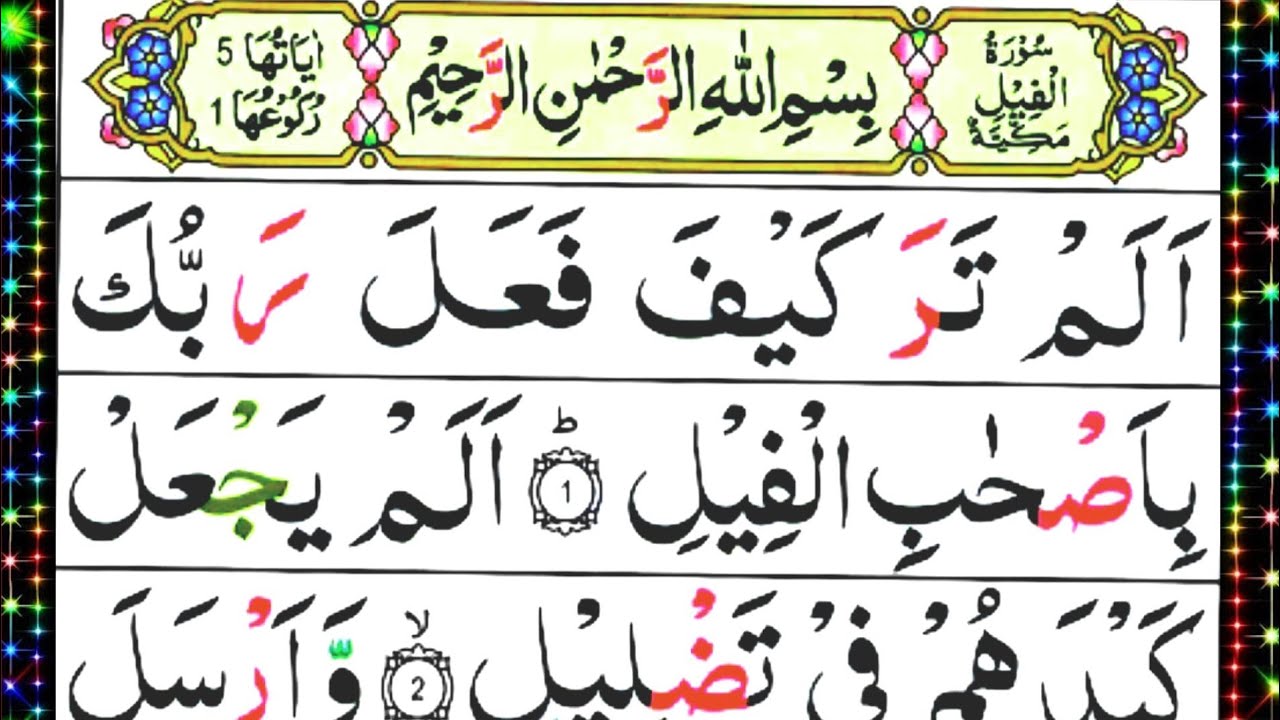 سُوْرَةُ الْفِيْلِ مَكِّيَّةٌ
بِسْمِ اللّٰهِ الرَّحْمٰنِ الرَّحِيْمِ
اٰيَاتُهَا 5 رُكُوْعُهَا 1
اَلَمْ تَرَ كَيْفَ فَعَلَ رَبُّكَ
بِاَصْحٰبِ الْفِيْلِ ؕ 1 اَلَمْ يَجْعَلْ
كَيْدَهُمْ فِيْ تَضْلِيْلٍ ۙ 2 وَّاَرْسَلَ